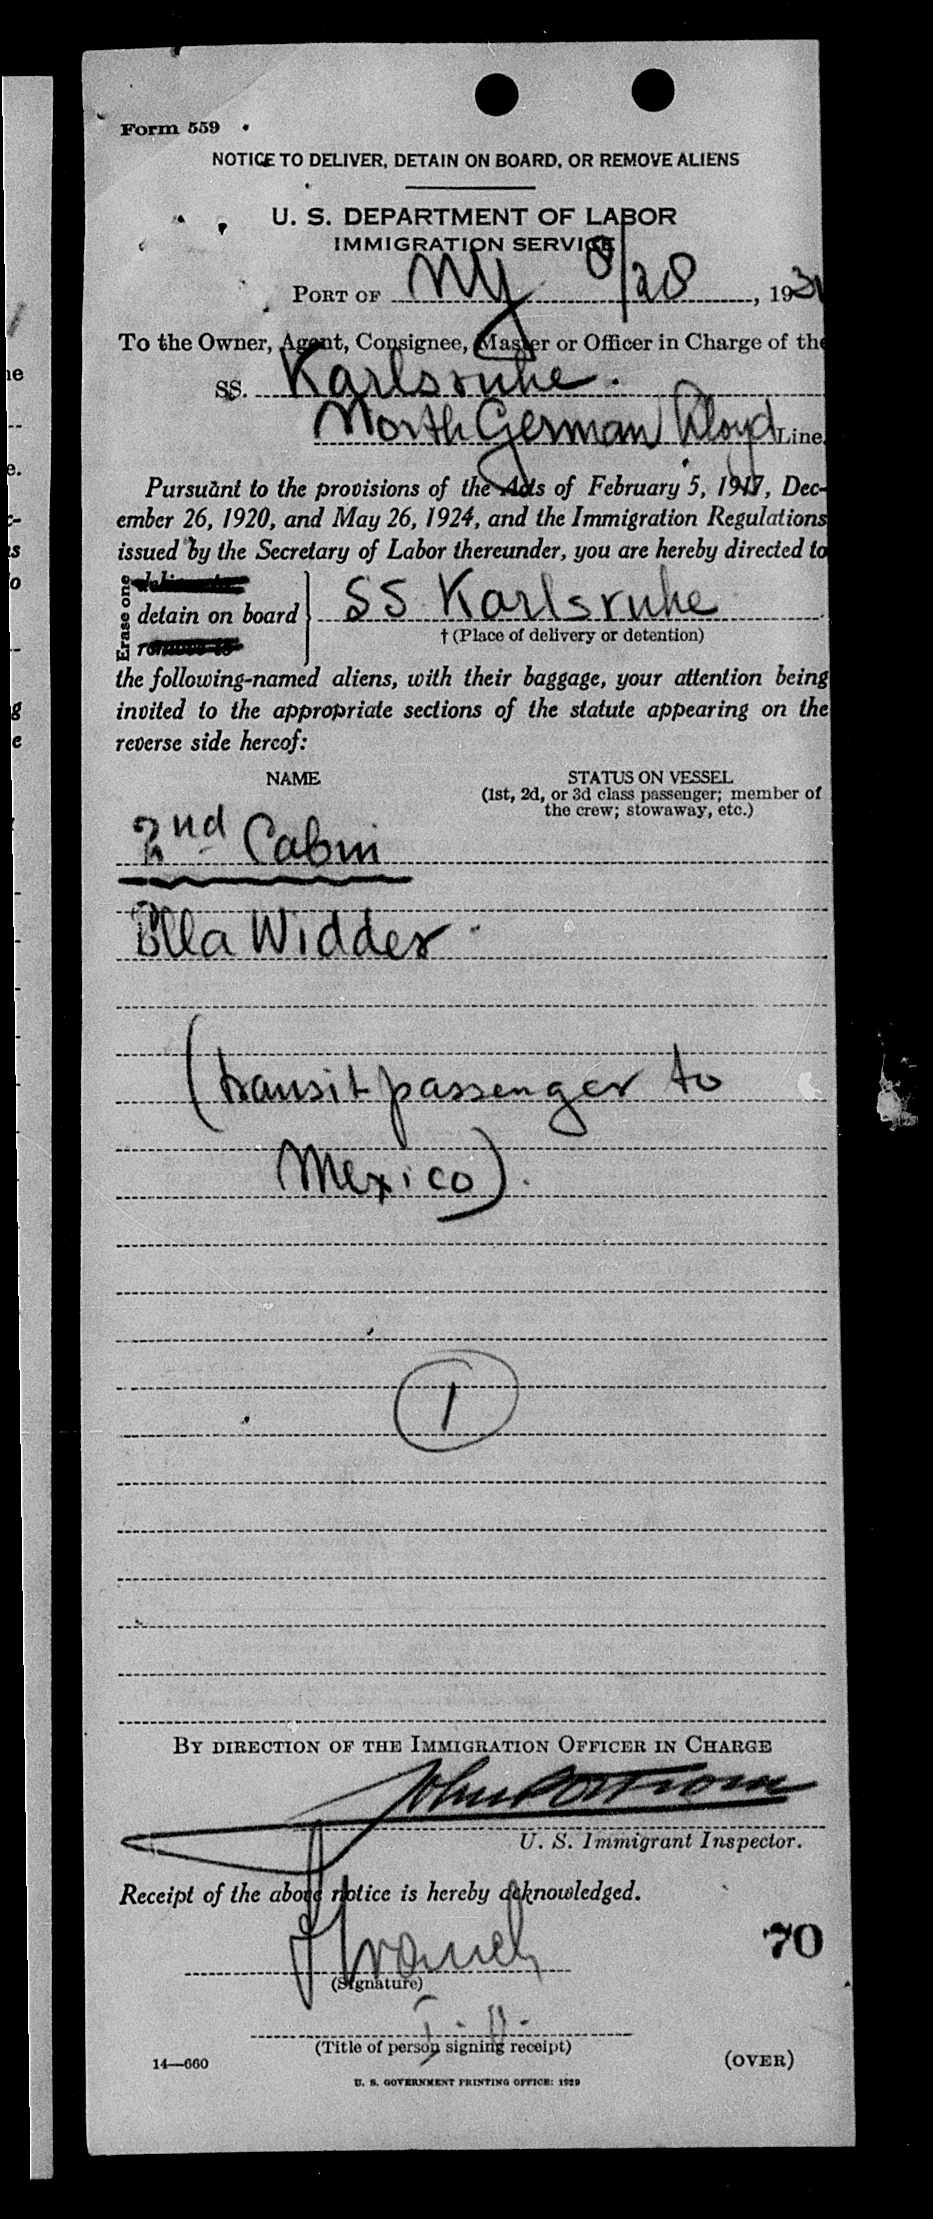 Form 559
NOTICE TO DELIVER, DETAIN ON BOARD, OR REMOVE ALIENS
U. S. DEPARTMENT OF LABOR
IMMIGRATION SERVICE
PORT OF NY 8/28, 1931
To the Owner, Agent, Consignee, Master or Officer in Charge of the
SS. Karlsruhe.
North German Lloyd Line.
Pursuant to the provisions of the Acts of February 5, 1917, Dec-
ember 26, 1920, and May 26, 1924, and the Immigration Regulations
issued by the Secretary of Labor thereunder, you are hereby directed to
Erase one
deliver to
detain on board } SS Karlsruhe
remove to
† (Place of delivery or detention)
the following-named aliens, with their baggage, your attention being
invited to the appropriate sections of the statute appearing on the
reverse side hereof:
NAME STATUS ON VESSEL
(1st, 2d, or 3d class passenger; member of
the crew; stowaway, etc.)
2nd Cabin
Ella Widder
(transit passenger to
Mexico).
1
BY DIRECTION OF THE IMMIGRATION OFFICER IN CHARGE
U. S. Immigrant Inspector.
Receipt of the above notice is hereby acknowledged.
70
(Signature)
(Title of person signing receipt)
14—660 (OVER)
U. S. GOVERNMENT PRINTING OFFICE: 1929